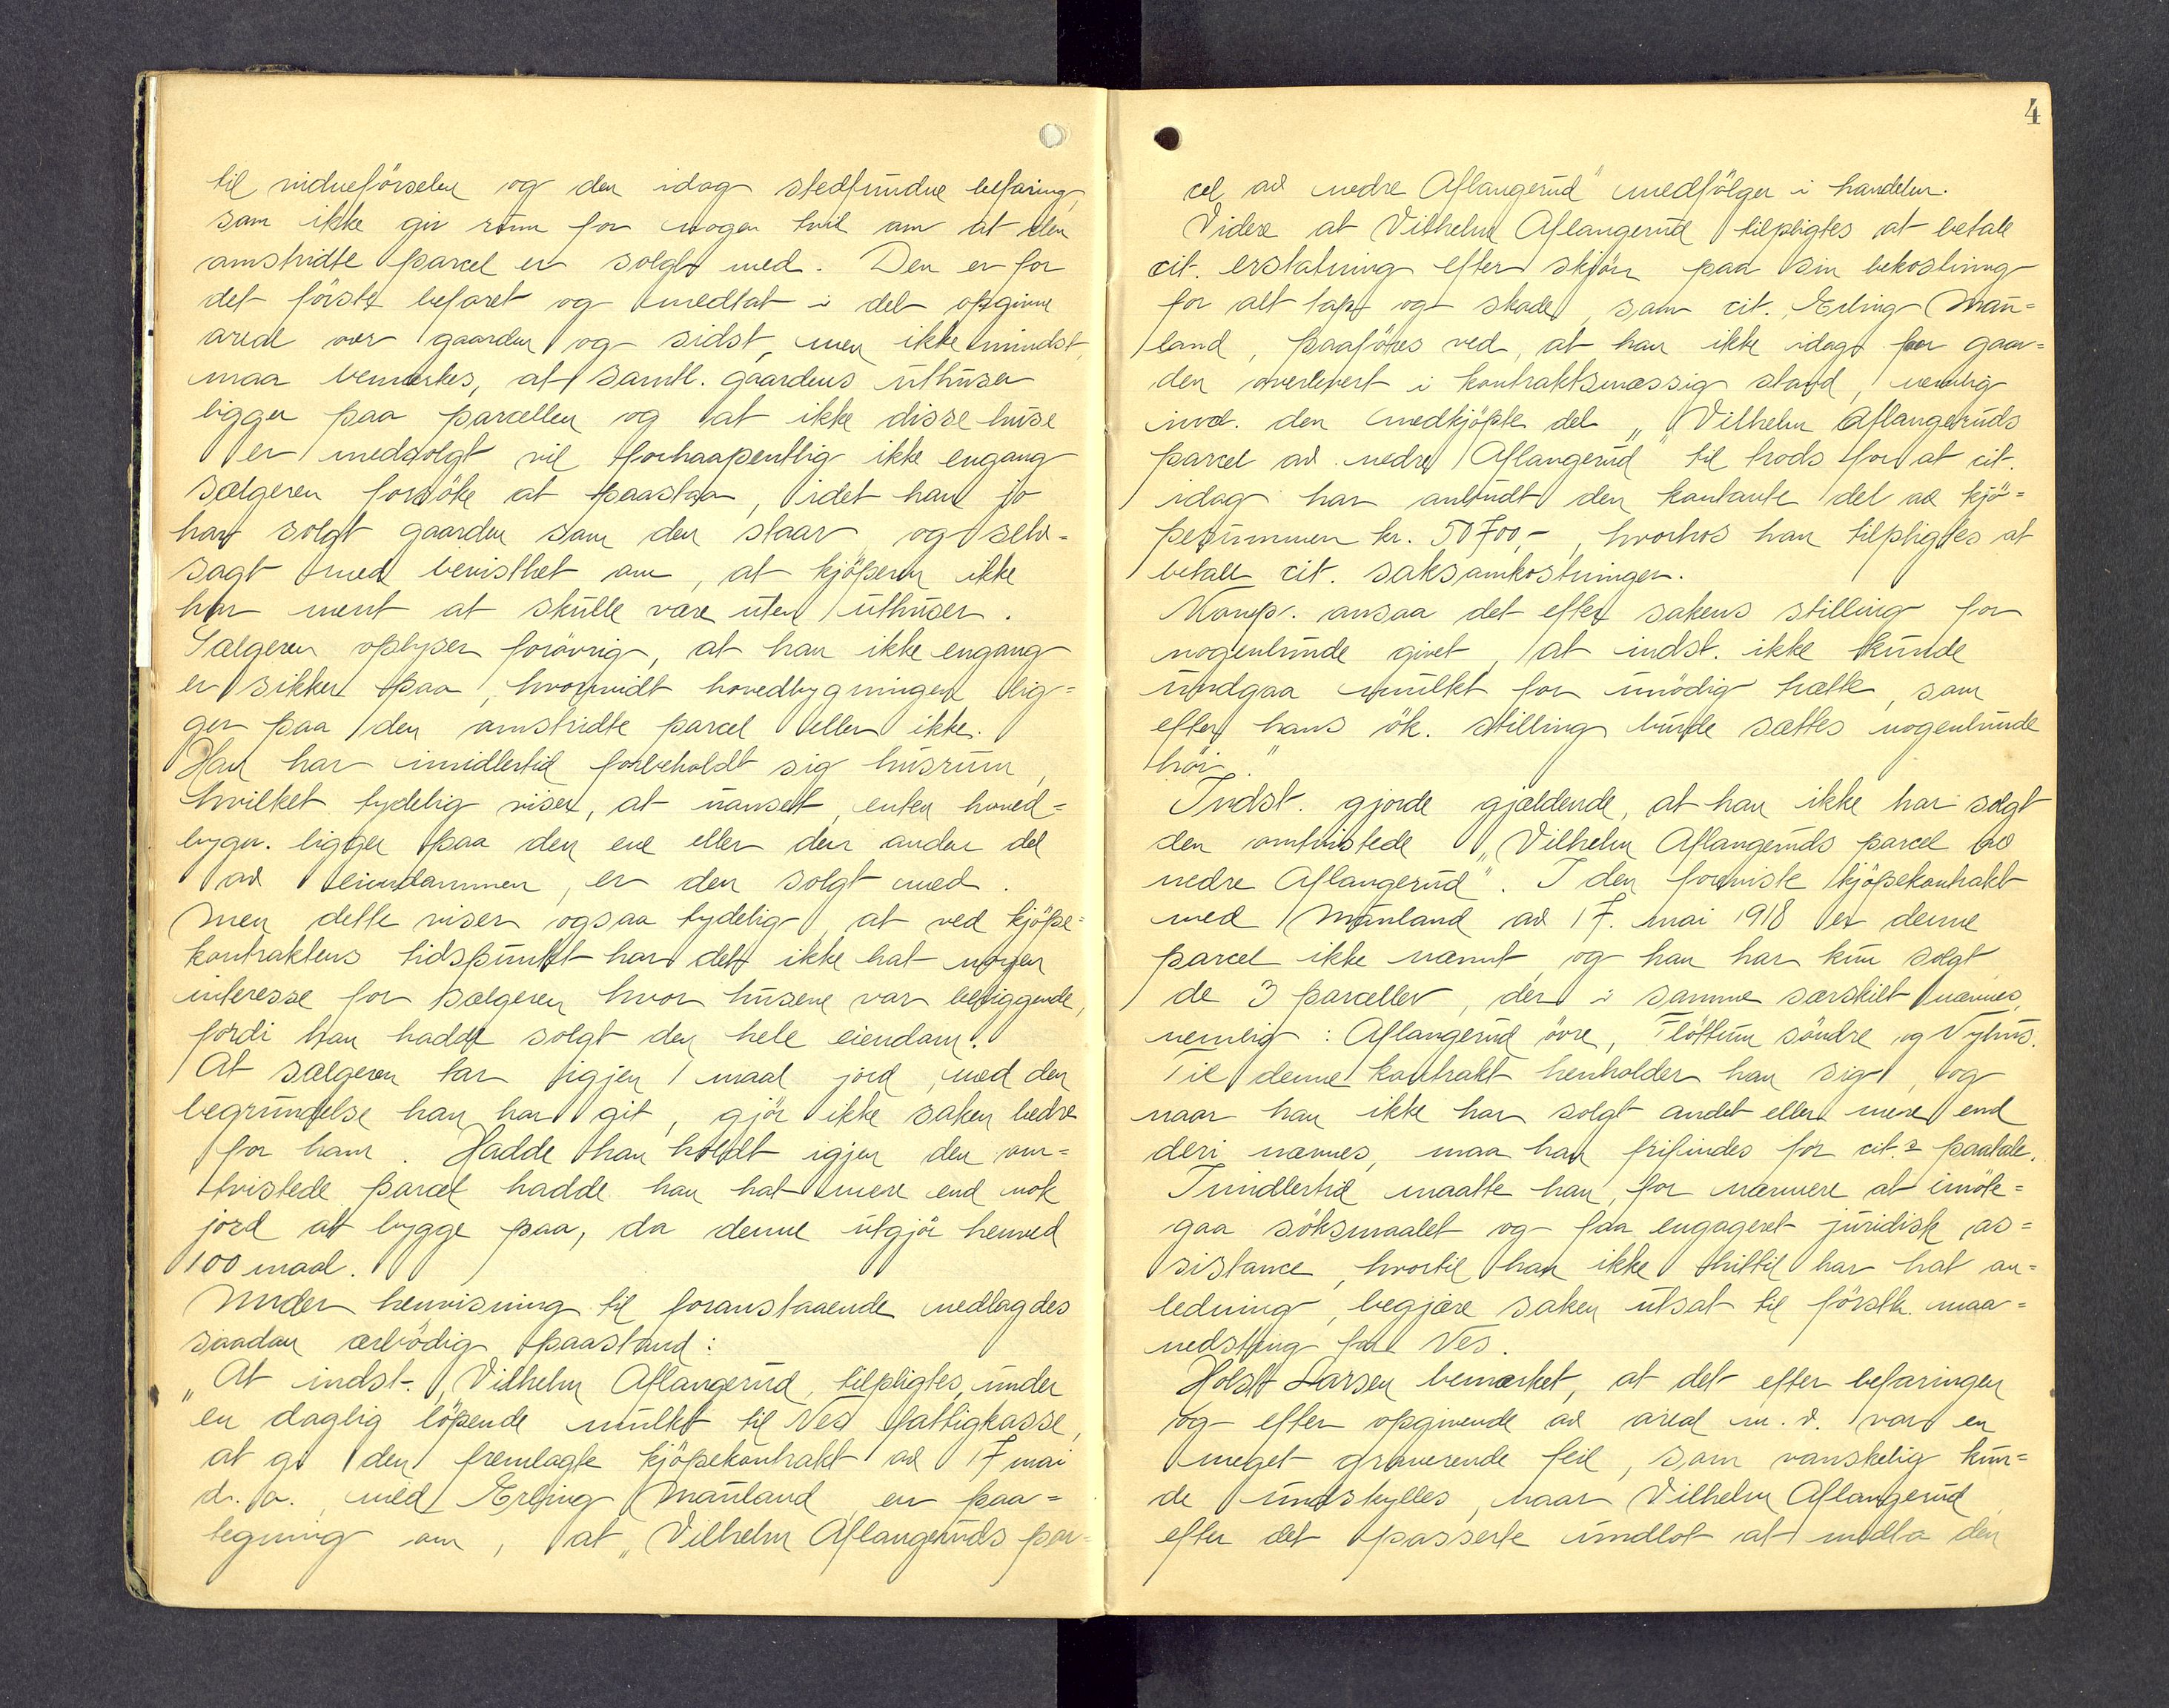 til vidneförselen og den idag stedfundne befaring,
som ikke gir rum for nogen tvil om at den
omstridte parcel er solgt med. Den er for
det förste befaret og medtat i det opgivne
areal over gaarden og sidst, men ikke mindst,
maa bemerkes, at samtl. gaardens uthuser
ligger paa parcellen og at ikke disse huse
er medsolgt vil forhaapentlig ikke engang
sælgeren forsöke at paastaa, idet han jo
har solgt gaarden som den staar og selv-
sagt med bevissthet om, at kjöperen ikke
har ment at skulle være uten uthuser.
Sælgeren oplyser forövrig, at han ikke engang
er sikker paa, hvorvidt hovedbygningen lig-
ger paa den omstridte parcel eller ikke.
Han har imidlertid forbeholdt sig husrum,
hvilket tydelig viser, at uanset, enten hoved-
bygn. ligger paa den ene eller den anden del
av eiendommen, er den solgt med.
Men dette viser ogsaa tydelig, at ved kjöpe-
kontraktens tidspunkt har det ikke hat nogen
interesse for sælgeren hvor husene var beliggende,
fordi han hadde solgt den hele eiendom.
At sælgeren tar igjen 1 maal jord, med den
begrundelse han har git, gjör ikke saken bedre
for ham. Hadde han holdt igjen den om-
tvistede parcel hadde han hat mere end nok
jord at bygge paa, da denne utgjör henved
100 maal.
Under henvisning til foranstaaende nedlagdes
saadan ærbödig paastand:
"At indst., Vilhelm Aflangerud, tilpligtes, under
en daglig löpende mulkt til Nes fattigkasse,
at gi den fremlagte kjöpekontrakt av 17 mai
d. a., med Erling Manland en paa-
tegning om, at "Vilhelm Aflangeruds par-
4
cel av nedre Aflangerud" medfölger i handelen.
Videre at Vilhelm Aflangerud tilpligtes at betale
cit. erstatning efter skjön paa sin bekostning
for alt tap og skade, som cit. Erling Man-
land, paaföres ved, at han ikke idag faar gaar-
den overlevert i kontraktsmæssig stand, nemlig
incl. den medkjöpte del, "Vilhelm Aflangeruds
parcel av nedre Aflangerud" til trods for at cit.
idag har anbudt den kontante del av kjö-
pesummen kr. 50700,-, hvorhos han tilpligtes at
betale cit. saksomkostninger.
Komp. ansaa det efter sakens stilling for
nogenlunde givet, at indst. ikke kunde
undgaa mulkt for unödig trætte, som
efter hans ök. stilling burde sættes nogenlunde
höi."
Indst. gjorde gjældende, at han ikke har solgt
den omtvistede "Vilhelm Aflangeruds parcel av
nedre Aflangerud". I den foreviste kjöpekontrakt
med Manland av 17. mai 1918 er denne
parcel ikke nævnt og han har kun solgt
de 3 parceller, der i samme særskilt nævnes,
nemlig: Aflangerud övre, Flöttum söndre og Nyhus.
Til denne kontrakt henholder han sig, og
naar han ikke har solgt andet eller mere end
deri nævnes, maa han frifindes for cit.s paatale.
Imidlertid maatte han, for nærmere at imöte-
gaa söksmaalet og faa engageret juridisk as-
sistance, hvortil han ikke hittil har hat an-
ledning, begjære saken utsat til förstk. maa-
nedsting for Nes.
Holst Larsen bemerket, at det efter befaringen
og efter opgivende av areal m. v. var en
meget graverende feil, som vanskelig kun-
de undskylles, naar Vilhelm Aflangerud
efter det passerte undlot at medta den